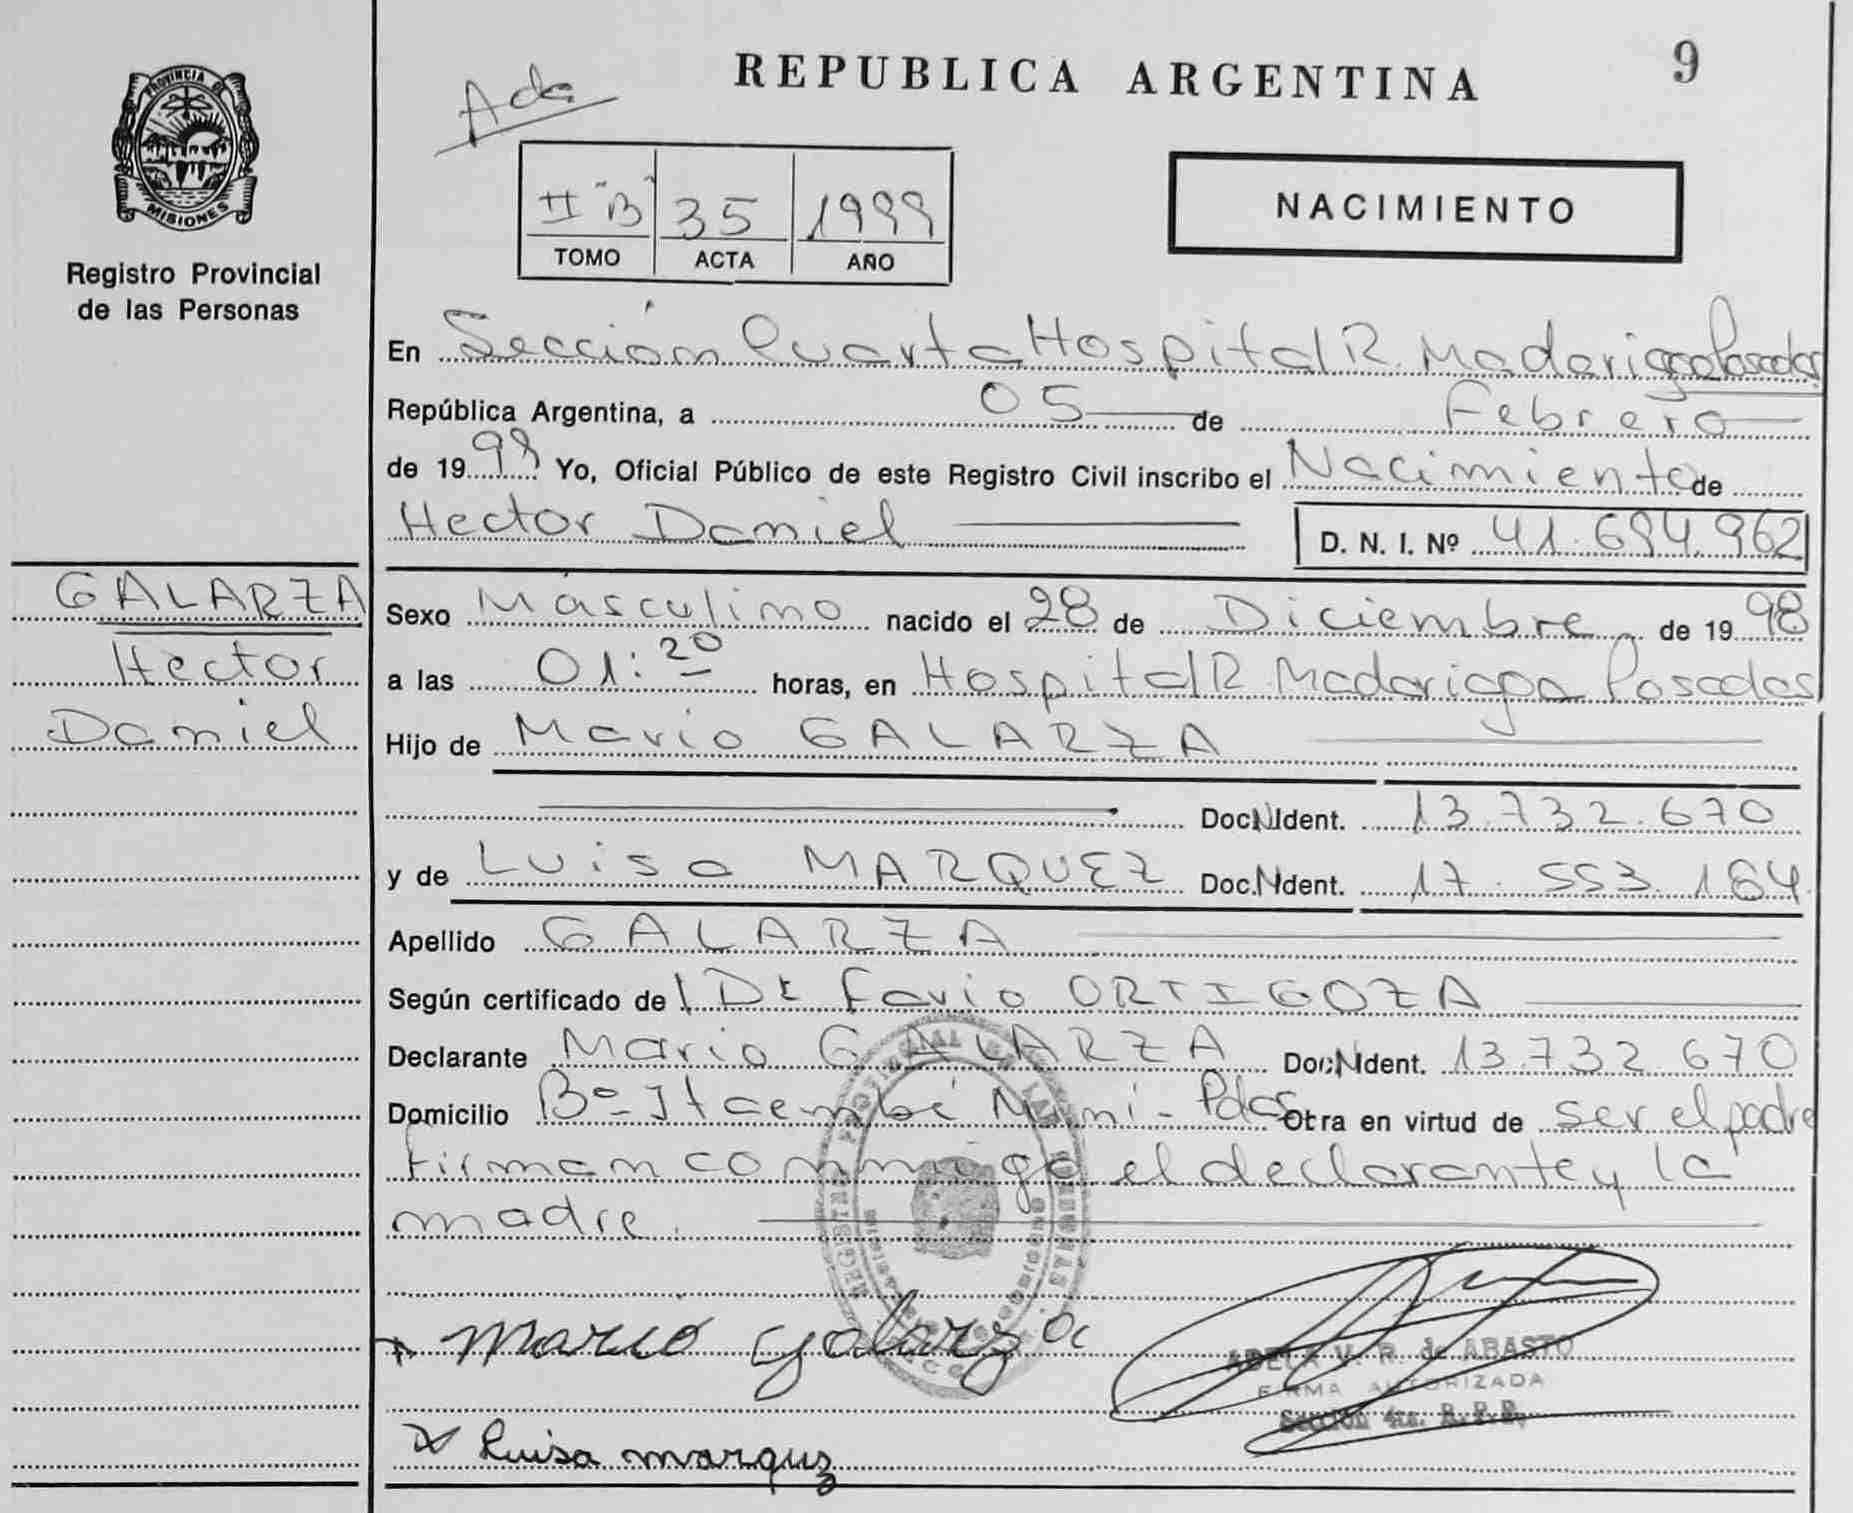 REPUBLICA ARGENTINA
9
PROVINCIA DE
MISIONES
Registro Provincial
de las Personas
II "B" 35 1999
TOMO ACTA AÑO
NACIMIENTO
En Sección Cuarta Hospital R. Madariaga Posadas
República Argentina, a 05 de Febrero
de 1999 Yo, Oficial Público de este Registro Civil inscribo el Nacimiento de
Hector Daniel D. N. I. Nº 41.694.962
GALARZA
Hector
Daniel
Sexo Masculino nacido el 28 de Diciembre de 1998
a las 01:20 horas, en Hospital R. Madariaga Posadas
Hijo de Mario GALARZA
Doc. Ident. 13.732.670
y de Luisa MARQUEZ Doc. Ident. 17.553.164
Apellido GALARZA
Según certificado de l Dr Favio ORTIGOZA
Declarante Mario GALARZA Doc. Ident. 13.732.670
Domicilio Bº Itaembé Miní - Pdas Otra en virtud de ser el padre
Firman conmigo el declarante y la
madre.
Mario Galarza
ADELA V. R. de ABASTO
FIRMA AUTORIZADA
Sección 4ta. R.P.P.
Luisa marquz